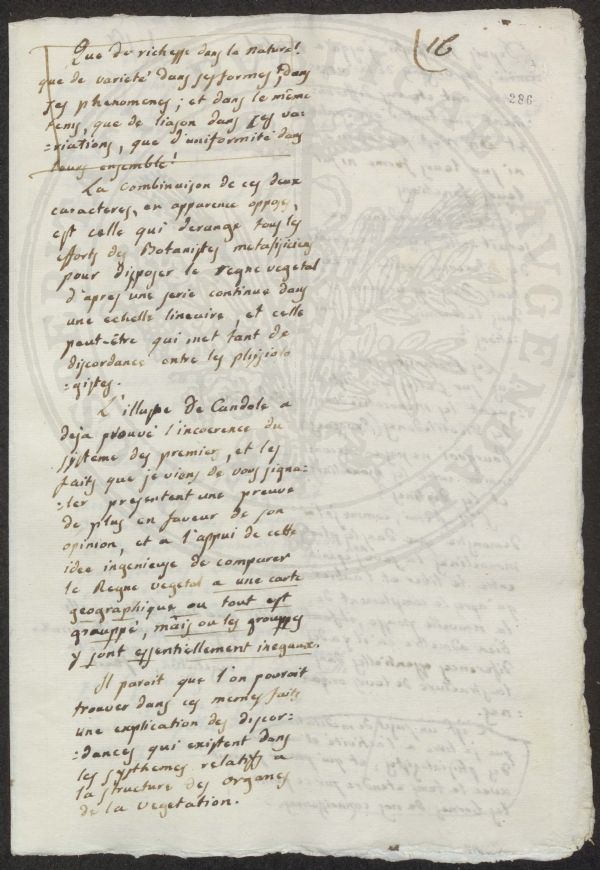 16
286
Que de richesse dans la nature!
que de varieté dans ses formes, dans
ses phenomenes; et dans le même
tems, que de liason dans ses va-
=riations, que d'uniformité dans
leurs ensemble!
La combinaison de ces deux
caracteres, en apparence opposés,
est celle qui derange tous les
efforts des Botanistes metafisiciens
pour disposer le regne vegetal
d'apres une serie continue dans
une echelle lineaire, et celle
peut-être qui met tant de
discordance entre les physiolo
=gistes.
L'illustre de Candole a
deja prouvé l'incoerence du
système des premiers, et les
faits que je viens de vous signa=
=ler presentent une preuve
de plus en faveur de son
opinion, et a l'appui de cette
idee ingenieuse de comparer
le Regne vegetal a une carte
geographique ou tout est
grouppé, mais ou les grouppes
y sont essentiellement inegaux.
Il paroit que l'on pouroit
trouver dans ces memes faits
une explication des discor=
=dances qui existent dans
les systhemes relatifs a
la structure des organes
de la vegetation.